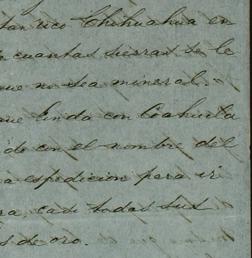 tan rico Chihuahua en
cuantas sierras se le
que no sea mineral.
que linda con Coahuila
de con el nombre del
a espedicion para ir
casi todas sus
s de oro.